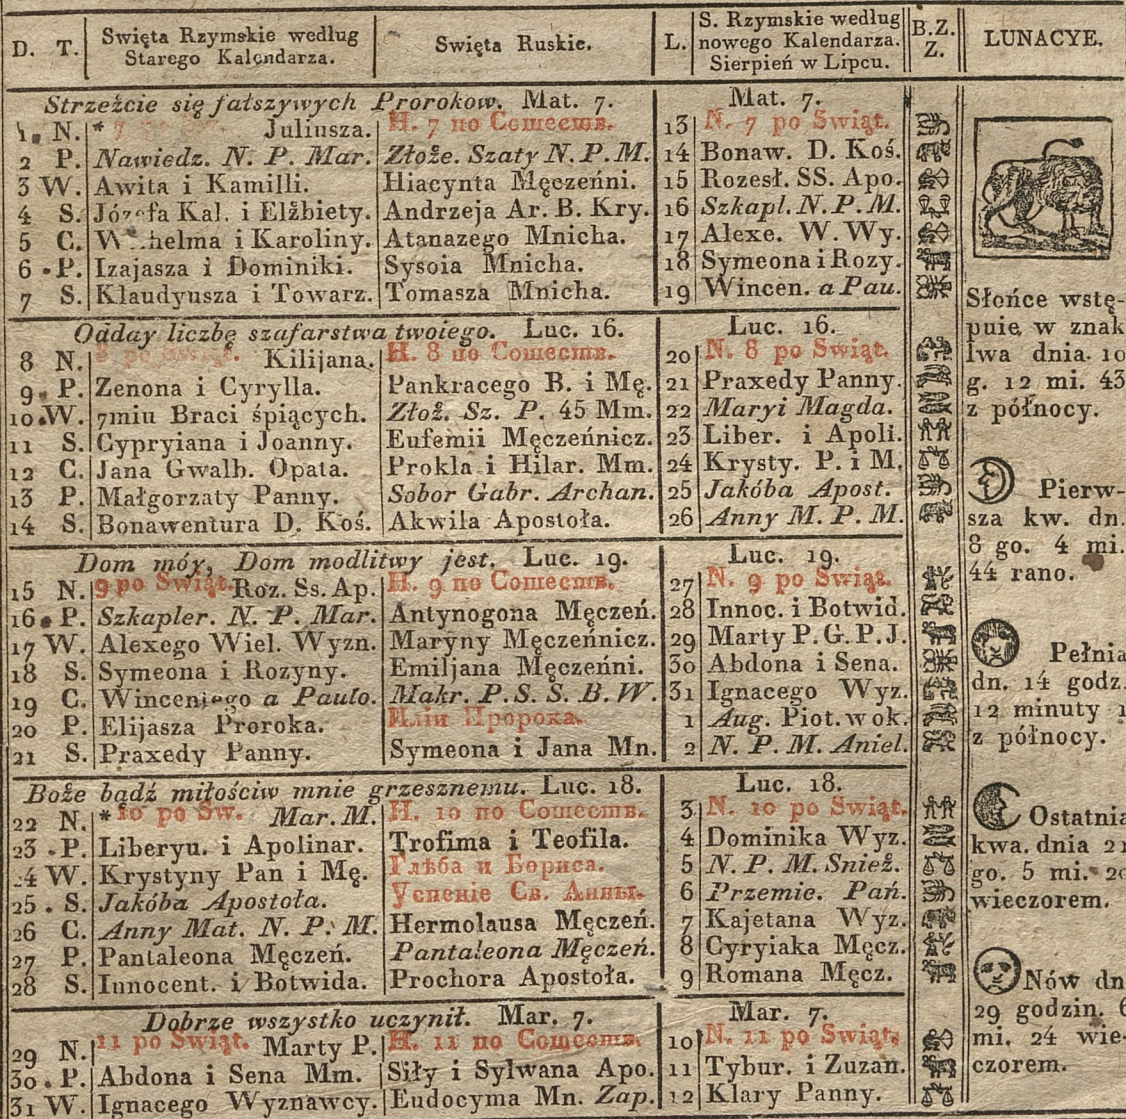 D. T. Swięta Rzymskie według Starego Kalendarza. Swięta Ruskie. L. S. Rzymskie według nowego Kalendarza. Sierpień w Lipcu. B.Z. Z. LUNACYE.
Strzeżcie się fałszywych Prorokow. Mat. 7. Mat. 7.
1. N. * 7 Juliusza. Н. 7 по Сошеств. 13 N. 7 po Swiąt.
2 P. Nawiedz. N. P. Mar. Złoże. Szaty N. P. M. 14 Bonaw. D. Koś.
3 W. Awita i Kamilli. Hiacynta Męczeńni. 15 Rozesł. SS. Apo.
4 S. Józefa Kal. i Elżbiety. Andrzeja Ar. B. Kry. 16 Szkapl. N. P. M.
5 C. Wilhelma i Karoliny. Atanazego Mnicha. 17 Alexe. W. Wy.
6 . P. Izajasza i Dominiki. Sysoia Mnicha. 18 Symeona i Rozy.
7 S. Klaudyusza i Towarz. Tomasza Mnicha. 19 Wincen. a Pau.
Odday liczbę szafarstwa twoiego. Luc. 16. Luc. 16.
8 N. 8 po Swiąt. Kilijana. Н. 8 по Сошеств. 20 N. 8 po Swiąt.
9. P. Zenona i Cyrylla. Pankracego B. i Mę. 21 Praxedy Panny.
10. W. 7miu Braci śpiących. Złoż. Sz. P. 45 Mm. 22 Maryi Magda.
11 S. Cypryiana i Joanny. Eufemii Męczeńnicz. 23 Liber. i Apoli.
12 C. Jana Gwalb. Opata. Prokla i Hilar. Mm. 24 Krysty. P. i M.
13 P. Małgorzaty Panny. Sobor Gabr. Archan. 25 Jakóba Apost.
14 S. Bonawentura D. Koś. Akwila Apostoła. 26 Anny M. P. M.
Dom móy, Dom modlitwy jest. Luc. 19. Luc. 19.
15 N. 9 po Swiąt. Roz. Ss. Ap. Н. 9 по Сошеств. 27 N. 9 po Swiąt.
16. P. Szkapler. N. P. Mar. Antynogona Męczeń. 28 Innoc. i Botwid.
17 W. Alexego Wiel. Wyzn. Maryny Męczeńnicz. 29 Marty P. G. P. J.
18 S. Symeona i Rozyny. Emiljana Męczeńni. 30 Abdona i Sena.
19 C. Wincentego a Paulo. Makr. P. S. S. B. W. 31 Ignacego Wyz.
20 P. Elijasza Proroka. Иліи Пророха. 1 Aug. Piot. w ok.
21 S. Praxedy Panny. Symeona i Jana Mn. 2 N. P. M. Aniel.
Boże bądź miłościw mnie grzesznemu. Luc. 18. Luc. 18.
22 N. * 10 po Sw. Mar. M. Н. 10 по Сошеств. 3 N. 10 po Swiąt.
23 . P. Liberyu. i Apolinar. Trofima i Teofila. 4 Dominika Wyz.
24 W. Krystyny Pan i Mę. Глѣба и Бориса. 5 N. P. M. Snież.
25 . S. Jakóba Apostoła. Успеніе Св. Анны. 6 Przemie. Pań.
26 C. Anny Mat. N. P. M. Hermolausa Męczeń. 7 Kajetana Wyz.
27 P. Pantaleona Męczeń. Pantaleona Męczeń. 8 Cyryiaka Męcz.
28 S. Innocent. i Botwida. Prochora Apostoła. 9 Romana Męcz.
Dobrze wszystko uczynił. Mar. 7. Mar. 7.
29 N. 11 po Swiąt. Marty P. Н. 11 по Сошеств. 10 N. 11 po Swiąt.
30 . P. Abdona i Sena Mm. Siły i Sylwana Apo. 11 Tybur. i Zuzan.
31 W. Ignacego Wyznawcy. Eudocyma Mn. Zap. 12 Klary Panny.
Słońce wstę-
puie w znak
lwa dnia 10
g. 12 mi. 43
z północy.
Pierw-
sza kw. dn.
8 go. 4 mi.
44 rano.
Pełnia
dn. 14 godz.
12 minuty 1
z północy.
Ostatnia
kwa. dnia 21
go. 5 mi. 20
wieczorem.
Nów dn
29 godzin. 6
mi. 24 wie-
czorem.